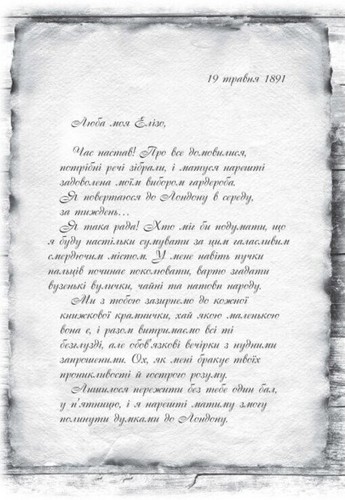 19 травня 1891
Люба моя Елізо,
Час настав! Про все домовилися,
потрібні речі зібрали, і матуся нарешті
задоволена моїм вибором гардероба.
Я повертаюся до Лондону в середу,
за тиждень...
Я така рада! Хто міг би подумати, що
я буду настільки сумувати за цим галасливим
смердючим містом. У мене навіть пучки
пальців починає поколювати, варто згадати
вузенькі вулички, чайні та натовп народу.
Ми з тобою зазирнемо до кожної
книжкової крамнички, хай якою маленькою
вона є, і разом витримаємо всі ті
безглузді, але обов'язкові вечірки з нудними
запрошеними. Ох, як мені бракує твоїх
проникливості й гострого розуму.
Лишилося пережити без тебе один бал,
у п'ятницю, і я нарешті матиму змогу
полинути думками до Лондону.